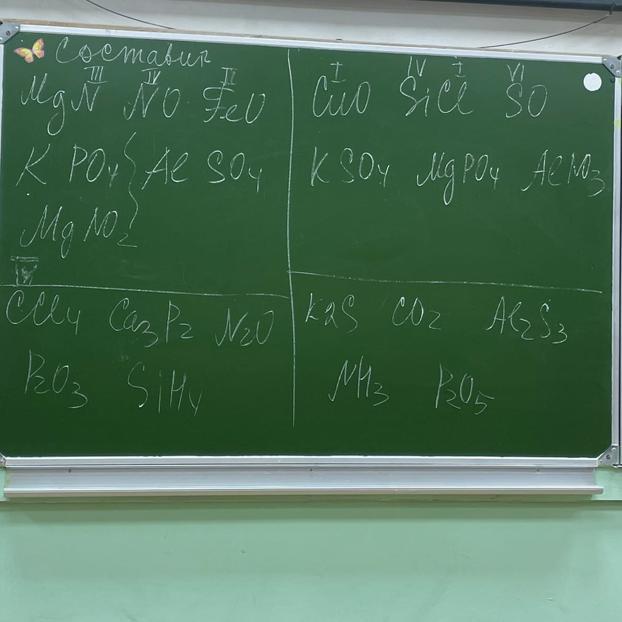 Составит
III IV II
MgN NO FeO
K PO4 Al SO4
MgNO2
IV
CCl4 Ca3P2 N2O
P2O3 SiH4
I IV I VI
CuO SiCl SO
KSO4 MgPO4 AlNO3
K2S CO2 Al2S3
NH3 P2O5